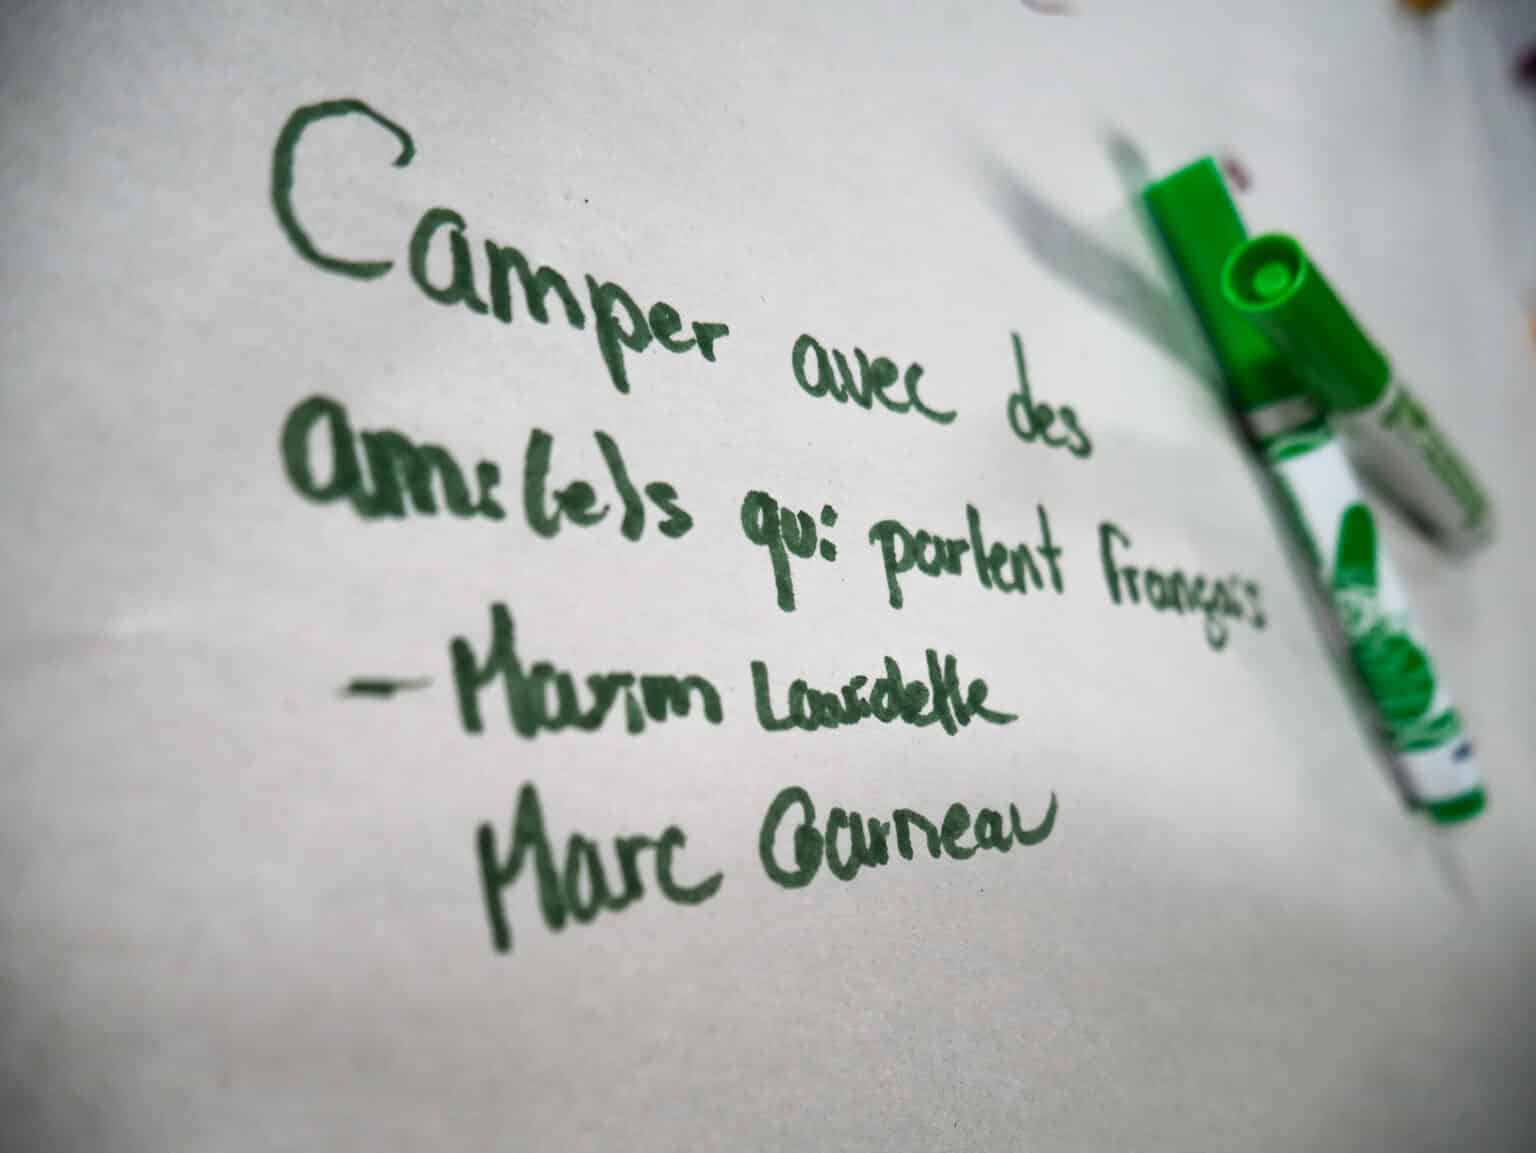 Camper avec des
ami(e)s qui parlent français
- Maxim Lavidette
Marc Garneau